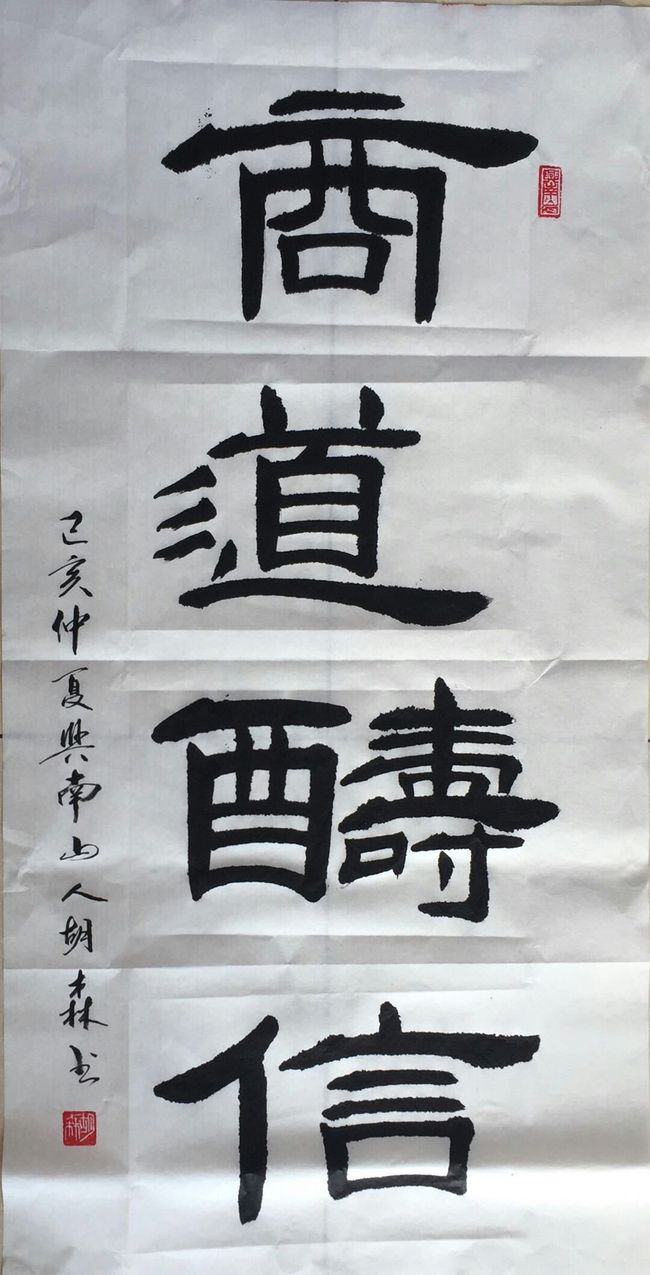 商道醻信
己亥仲夏興南山人胡森书